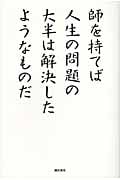 師を持てば
人生の問題の
大半は解決した
ようなものだ